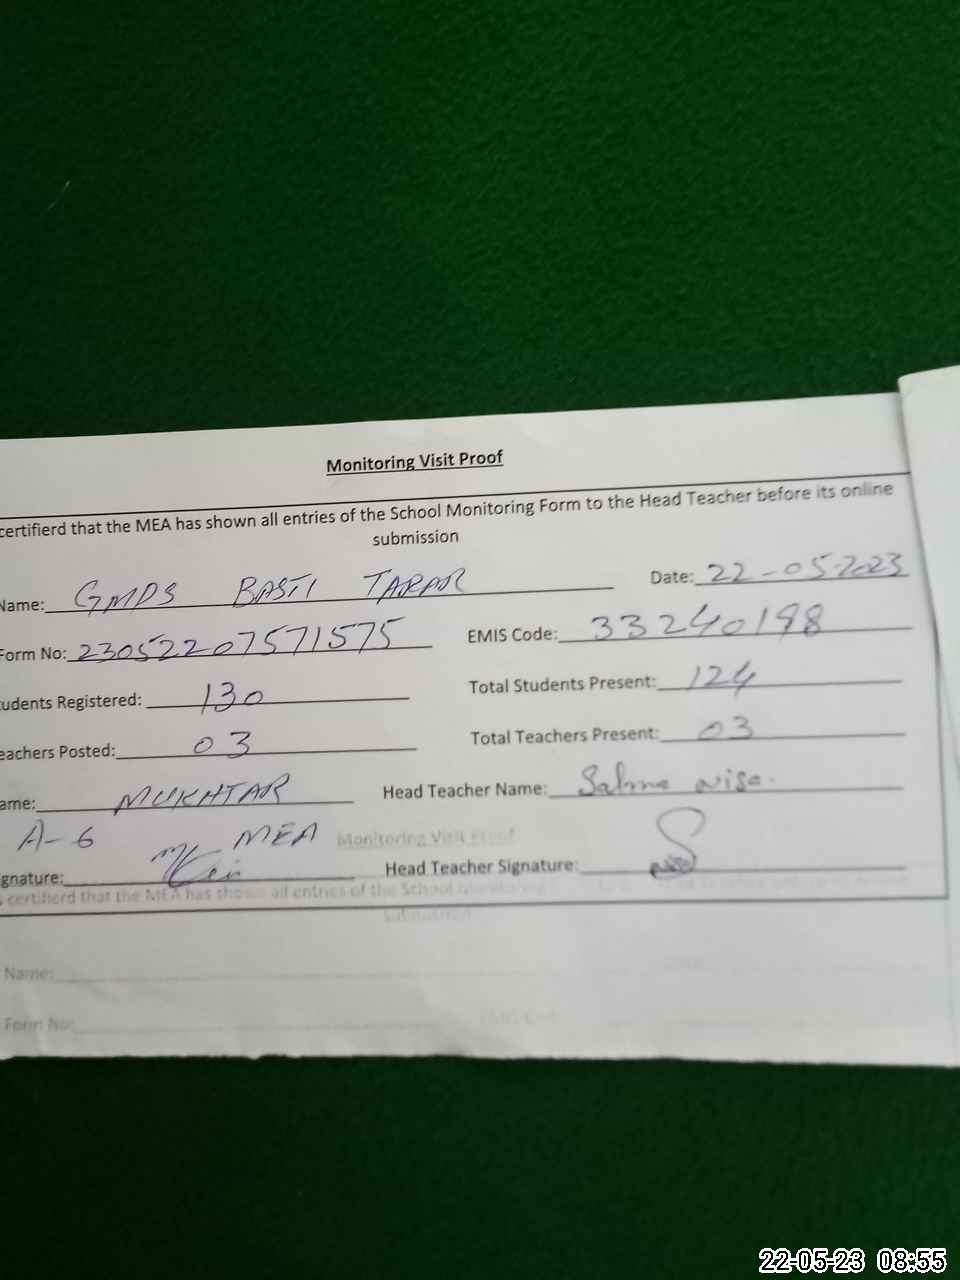 Monitoring Visit Proof
certifierd that the MEA has shown all entries of the School Monitoring Form to the Head Teacher before its online
submission
Name: GMPS BASTI TARAR Date: 22-05-2023
Form No: 230522207571575 EMIS Code: 33240198
udents Registered: 130 Total Students Present: 124
eachers Posted: 03 Total Teachers Present: 03
ame: MUKHTAR Head Teacher Name: Salma nisa.
A-6 MEA Monitoring Visit Proof
gnature: Head Teacher Signature:
certifierd that the MEA has shown all entries of the School Monitoring
submission
Name:
Form No:
22-05-23 08:55